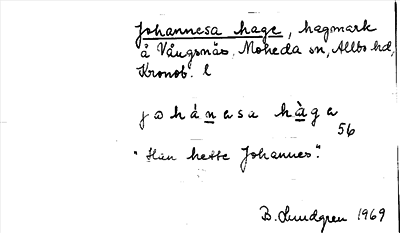 Johannesa hage, hagmark
å Vångsnäs. Moheda sn, Allbo hd,
Kronob. l
jɷhánasa hàga
56
"Han hette Johannes".
B. Lundgren 1969